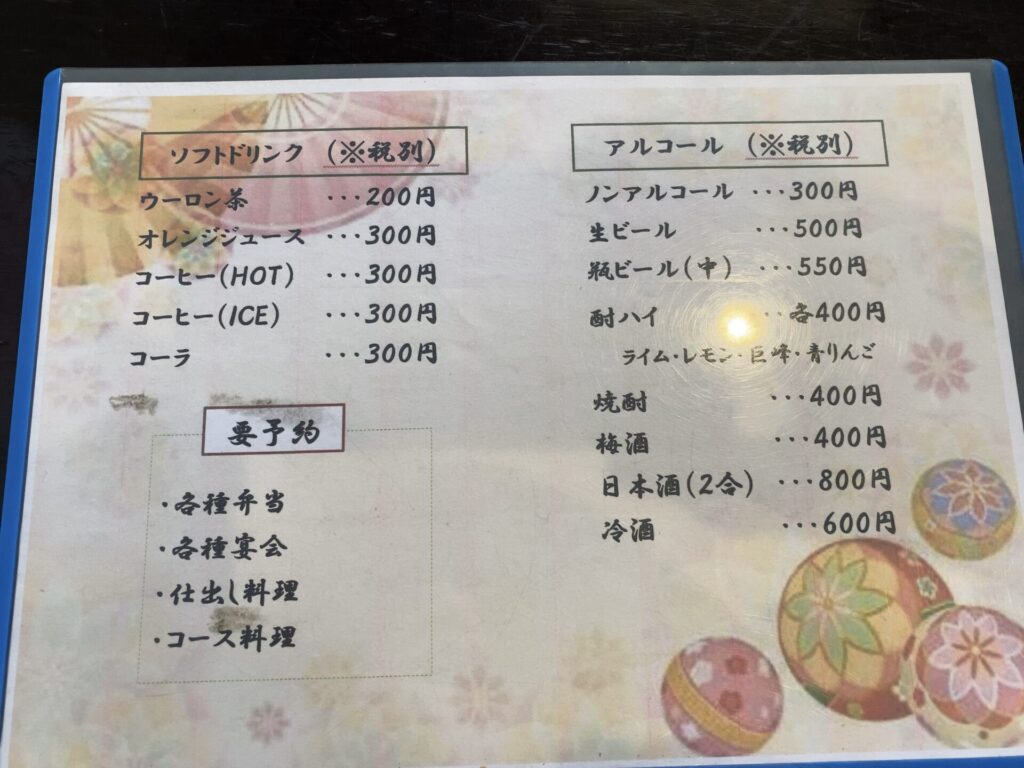 ソフトドリンク (※税別)
ウーロン茶 ･･･200円
オレンジジュース ･･･300円
コーヒー(HOT) ･･･300円
コーヒー(ICE) ･･･300円
コーラ ･･･300円
要予約
･各種弁当
･各種宴会
･仕出し料理
･コース料理
アルコール (※税別)
ノンアルコール ･･･300円
生ビール ･･･500円
瓶ビール(中) ･･･550円
酎ハイ ･･･各400円
ライム･レモン･巨峰･青りんご
焼酎 ･･･400円
梅酒 ･･･400円
日本酒(2合) ･･･800円
冷酒 ･･･600円